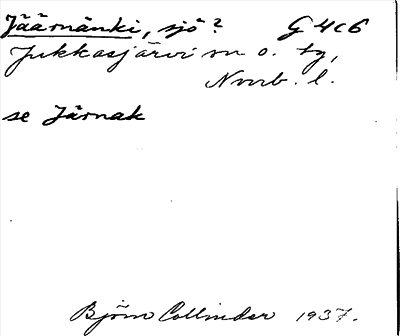 Jäärnänki, sjö? G4c6
Jukkasjärvi sn o. tg,
Norrb. l.
se Järnak
Björn Collinder 1937.